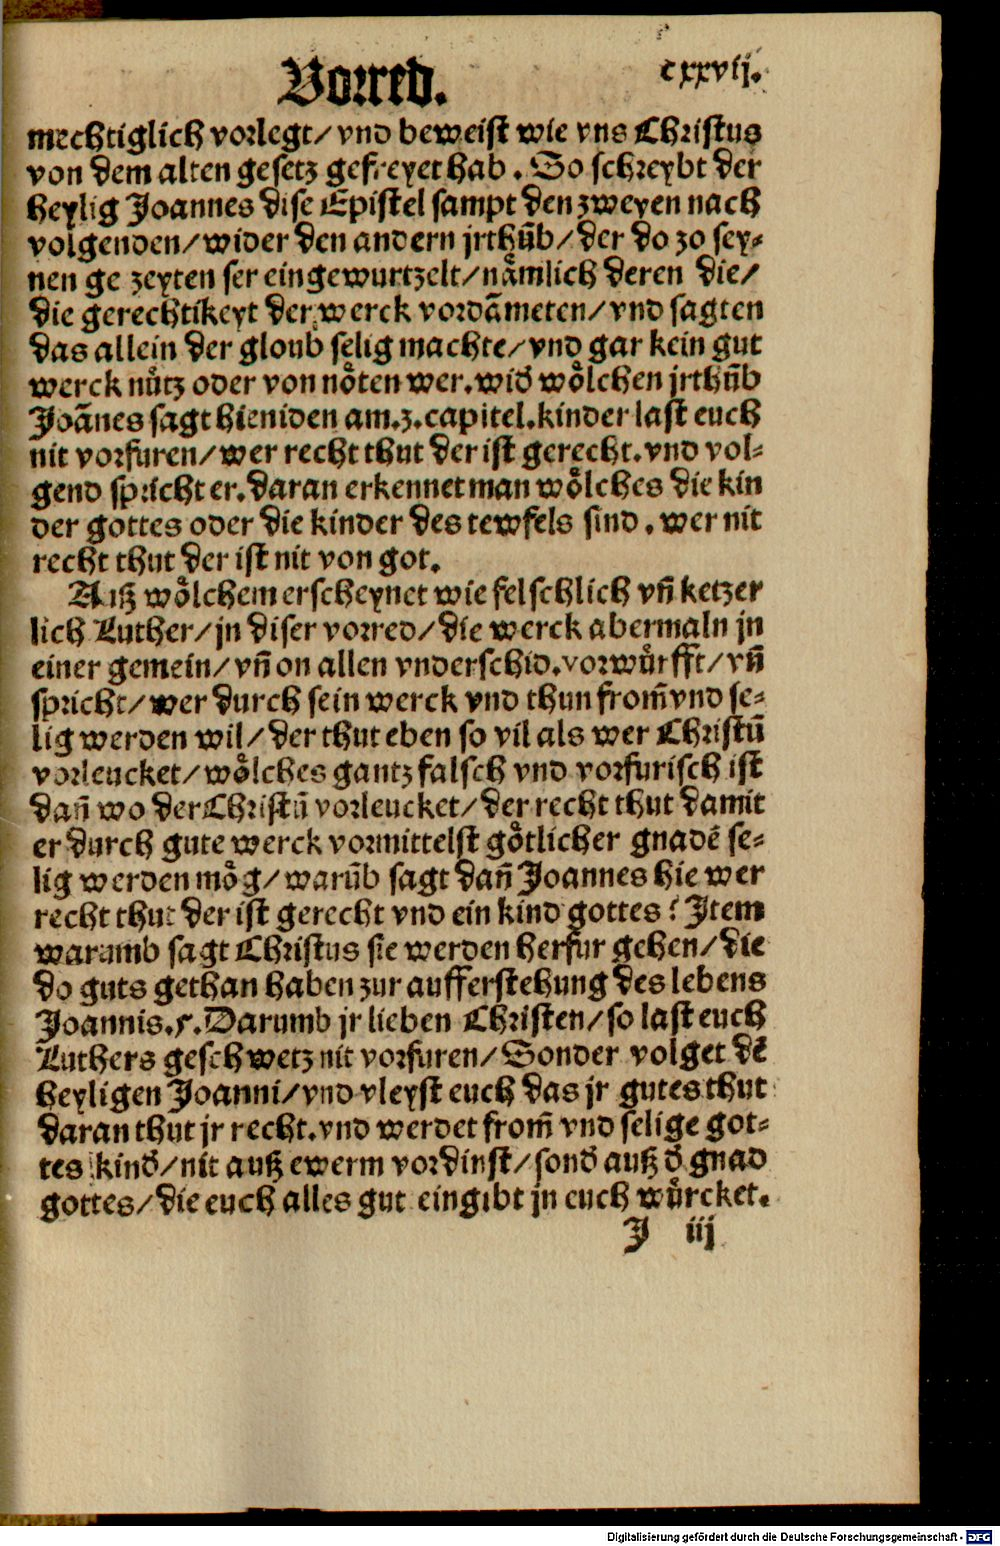 Vorred. cxxvij.
mechtiglich vorlegt/ vnd beweist wie vns Christus
von dem alten gesetz gefreyet hab. So schreybt der
heylig Joannes dise Epistel sampt den zweyen nach
volgenden/ wider den andern jrthūb/ der do zo sey-
nen ge zeyten ser eingewurtzelt/ nåmlich deren die/
die gerechtikeyt der werck vordāmeten/ vnd sagten
das allein der gloub selig machte/ vnd gar kein gut
werck nůtz oder von nöten wer. wid̄ wölchen jrthūb
Joānes sagt hieniden am.3.capitel.kinder last euch
nit vorfuren/ wer recht thut der ist gerecht. vnd vol-
gend spricht er. daran erkennet man wölches die kin
der gottes oder die kinder des tewfels sind. wer nit
recht thut der ist nit von got.
Auß wölchem erscheynet wie felschlich vn̄ ketzer
lich Luther/ jn diser vorred/ die werck abermaln jn
einer gemein/ vn̄ on allen vnderschid. vorwürfft/ vn̄
spricht/ wer durch sein werck vnd thun from̄ vnd se-
lig werden wil/ der thut eben so vil als wer Christū
vorleucket/ wölches gantz falsch vnd vorfurisch ist
dan̄ wo der Christū vorleucket/ der recht thut damit
er durch gute werck vormittelst götlicher gnadē se-
lig werden mög/ warūb sagt dan̄ Joannes hie wer
recht thut der ist gerecht vnd ein kind gottes? Item
warumb sagt Christus sie werden herfur gehen/ die
do guts gethan haben zur aufferstehung des lebens
Joannis.5. Darumb jr lieben Christen/ so last euch
Luthers geschwetz nit vorfuren/ Sonder volget dē
heyligen Joanni/ vnd vleyst euch das jr gutes thut
daran thut jr recht. vnd werdet from̄ vnd selige got-
tes kind̄/ nit auß ewerm vordinst/ sond̄ auß d̄ gnad
gottes/ die euch alles gut eingibt jn euch würcket.
J iij
Digitalisierung gefördert durch die Deutsche Forschungsgemeinschaft - DFG